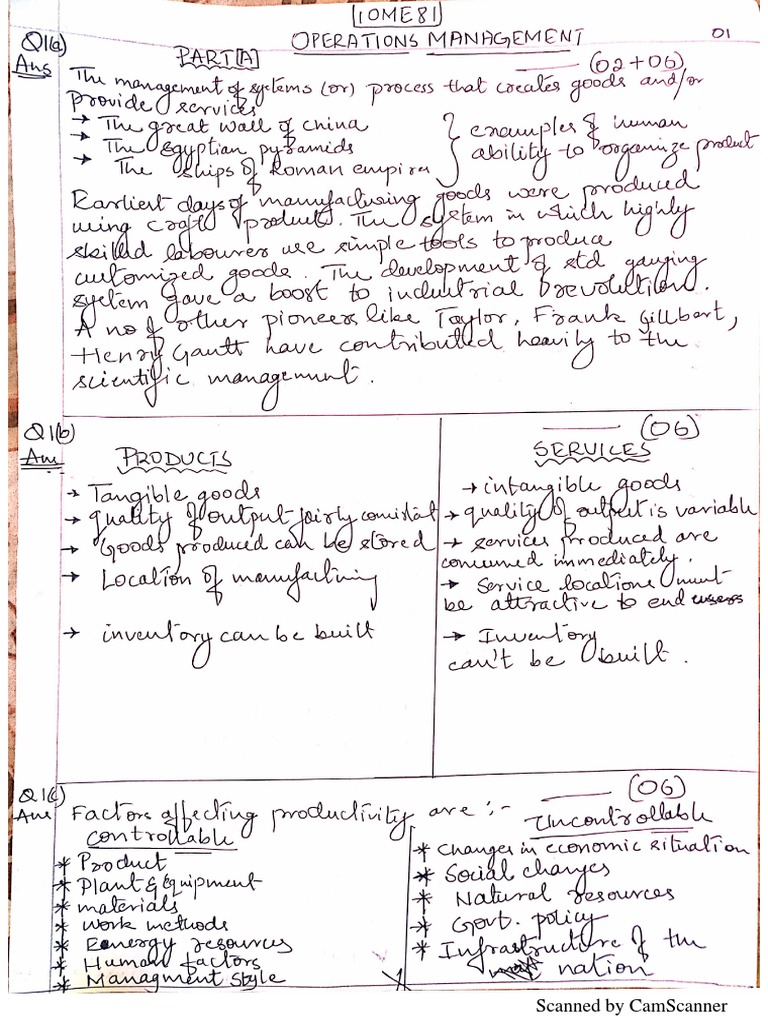 10ME81
OPERATIONS MANAGEMENT
01
Q1(a)
PART[A]
(02+06)
Ans
The management of systems (or) process that creates goods and/or
provide services
→ The great wall of china
→ The Egyptian pyramids
→ The ships of Roman empire
examples of human
ability to organize product
Earliest days of manufacturing goods were produced
using craft product. The system in which highly
skilled labourer use simple tools to produce
customized goods. The development of std gauging
system gave a boost to industrial revolution.
A no of other pioneers like Taylor, Frank Gillbert,
Henry Gautt have contributed heavily to the
scientific management.
Q1(b)
(06)
Ans
PRODUCTS
→ Tangible goods
→ quality of output fairly consistat
→ Goods produced can be stored
→ Location of manufacturing
→ inventory can be built
SERVICES
→ intangible goods
→ quality of output is variable
→ services produced are
consumed immediately.
→ Service locations must
be attractive to end users
→ Inventory
can't be built.
Q1(c)
(06)
Ans
Factors affecting productivity are :-
controllable
* Product
* Plant & Equipment
* materials
* work methods
* Eenergy resources
* Human factors
* Managment style
Uncontrollable
* Changes in economic situation
* Social changes
* Natural resources
* Govt. policy
* Infrastructure of the
nation
Scanned by CamScanner